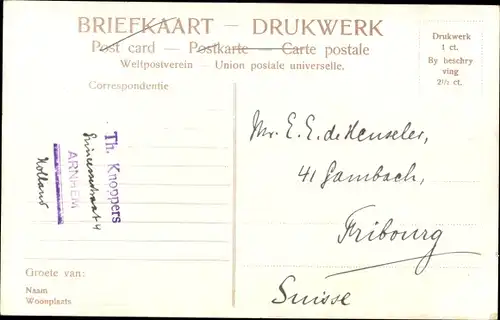 BRIEFKAART — DRUKWERK
Post card — Postkarte — Carte postale
Weltpostverein — Union postale universelle.
Drukwerk
1 ct.
By beschry
ving
2½ ct.
Correspondentie
Th. Knoppers
Prinsessestraat 4
ARNHEM
Holland
Mr. E. E. de Heuseler,
41 Gambach,
Fribourg
Suisse
Groete van:
Naam
Woonplaats